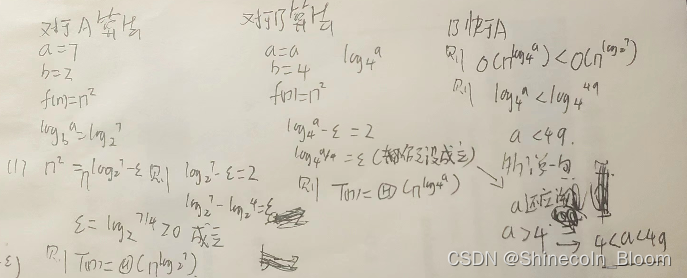 对于A算法
a=7
b=2
f(n)=n²
log_b^a=log_2^7
(1) n²=n^{log_2^7-ε} 则 log_2^7-ε=2
log_2^7-log_2^4=ε
ε=log_2^{7/4}>0 成立
则 T(n)=Θ(n^{log_2^7})
对于B算法
a=a
b=4
log_4^a
f(n)=n²
log_4^a-ε=2
=ε
则 T(n)=Θ(n^{log_4^a})
B快于A
则 O(n^{log_4^a})<O(n^{log_2^7})
则 log_4^a<log_4^{49}
a<49.
a还应
a>4 → 4<a<49
CSDN @Shinecoln_Bloom